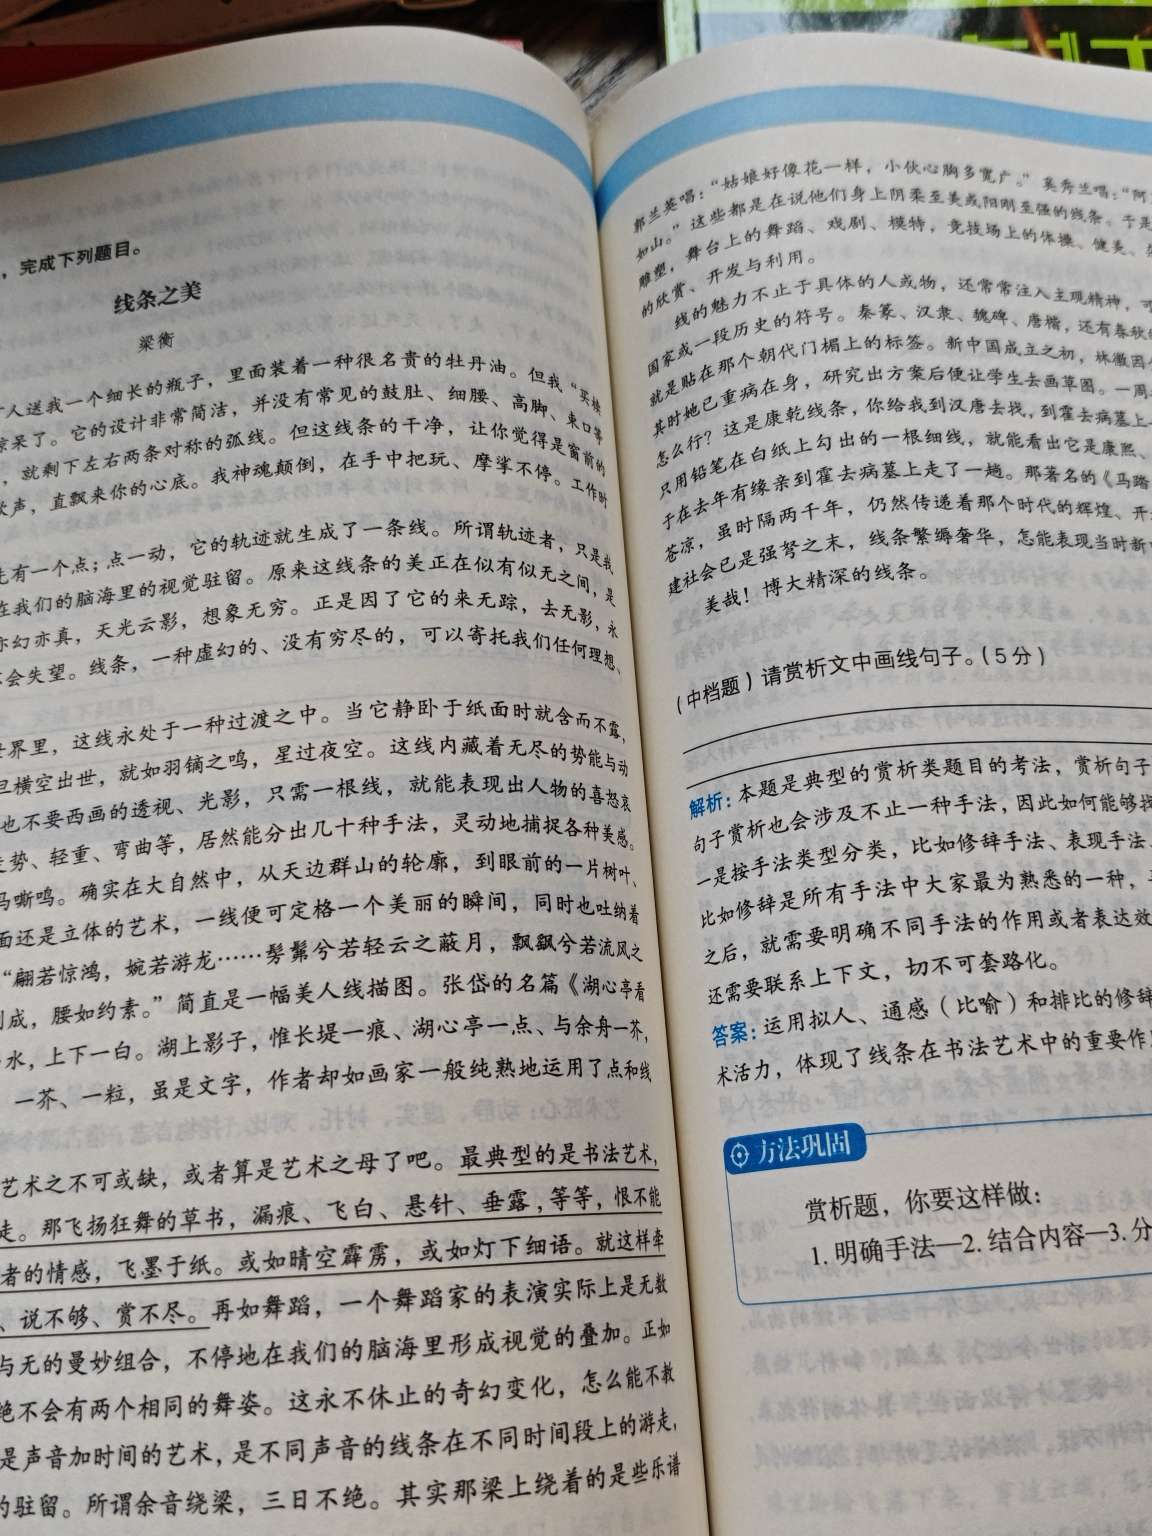 ，完成下列题目。
线条之美
梁衡
人送我一个细长的瓶子，里面装着一种很名贵的牡丹油。但我“买椟
惊呆了。它的设计非常简洁，并没有常见的鼓肚、细腰、高脚、束口等
，就剩下左右两条对称的弧线。但这线条的干净，让你觉得是窗前的
声，直飘来你的心底。我神魂颠倒，在手中把玩、摩挲不停。工作时
先有一个点；点一动，它的轨迹就生成了一条线。所谓轨迹者，只是我
在我们的脑海里的视觉驻留。原来这线条的美正在似有似无之间，是
亦幻亦真，天光云影，想象无穷。正是因了它的来无踪，去无影，永
会失望。线条，一种虚幻的、没有穷尽的，可以寄托我们任何理想、
世界里，这线永处于一种过渡之中。当它静卧于纸面时就含而不露，
旦横空出世，就如羽镝之鸣，星过夜空。这线内藏着无尽的势能与动
也不要西画的透视、光影，只需一根线，就能表现出人物的喜怒哀
走势、轻重、弯曲等，居然能分出几十种手法，灵动地捕捉各种美感。
马嘶鸣。确实在大自然中，从天边群山的轮廓，到眼前的一片树叶、
面还是立体的艺术，一线便可定格一个美丽的瞬间，同时也吐纳着
“翩若惊鸿，婉若游龙……髣髴兮若轻云之蔽月，飘飖兮若流风之
成，腰如约素。”简直是一幅美人线描图。张岱的名篇《湖心亭看
水，上下一白。湖上影子，惟长堤一痕、湖心亭一点、与余舟一芥，
一芥、一粒，虽是文字，作者却如画家一般纯熟地运用了点和线
艺术之不可或缺，或者算是艺术之母了吧。最典型的是书法艺术，
走。那飞扬狂舞的草书，漏痕、飞白、悬针、垂露，等等，恨不能
者的情感，飞墨于纸。或如晴空霹雳，或如灯下细语。就这样牵
、说不够、赏不尽。再如舞蹈，一个舞蹈家的表演实际上是无数
与无的曼妙组合，不停地在我们的脑海里形成视觉的叠加。正如
绝不会有两个相同的舞姿。这永不休止的奇幻变化，怎么能不教
是声音加时间的艺术，是不同声音的线条在不同时间段上的游走，
的驻留。所谓余音绕梁，三日不绝。其实那梁上绕着的是些乐谱
郭兰英唱：“姑娘好像花一样，小伙心胸多宽广。”奚秀兰唱：“阿
如山。”这些都是在说他们身上阴柔至美或阳刚至强的线条。于是
雕塑，舞台上的舞蹈、戏剧、模特，竞技场上的体操、健美、
的欣赏、开发与利用。
线的魅力不止于具体的人或物，还常常注入主观精神，可
国家或一段历史的符号。秦篆、汉隶、魏碑、唐楷，还有春秋的
就是贴在那个朝代门楣上的标签。新中国成立之初，林徽因
其时她已重病在身，研究出方案后便让学生去画草图。一周
怎么行？这是康乾线条，你给我到汉唐去找，到霍去病墓上
只用铅笔在白纸上勾出的一根细线，就能看出它是康熙、
于在去年有缘亲到霍去病墓上走了一趟。那著名的《马踏
苍凉，虽时隔两千年，仍然传递着那个时代的辉煌、开
建社会已是强弩之末，线条繁缛奢华，怎能表现当时新
美哉！博大精深的线条。
(中档题)请赏析文中画线句子。(5分)
解析：本题是典型的赏析类题目的考法，赏析句子
句子赏析也会涉及不止一种手法，因此如何能够找
一是按手法类型分类，比如修辞手法、表现手法、
比如修辞是所有手法中大家最为熟悉的一种，
之后，就需要明确不同手法的作用或者表达效
还需要联系上下文，切不可套路化。
答案：运用拟人、通感（比喻）和排比的修辞
术活力，体现了线条在书法艺术中的重要作
方法巩固
赏析题，你要这样做：
1.明确手法—2.结合内容—3.分